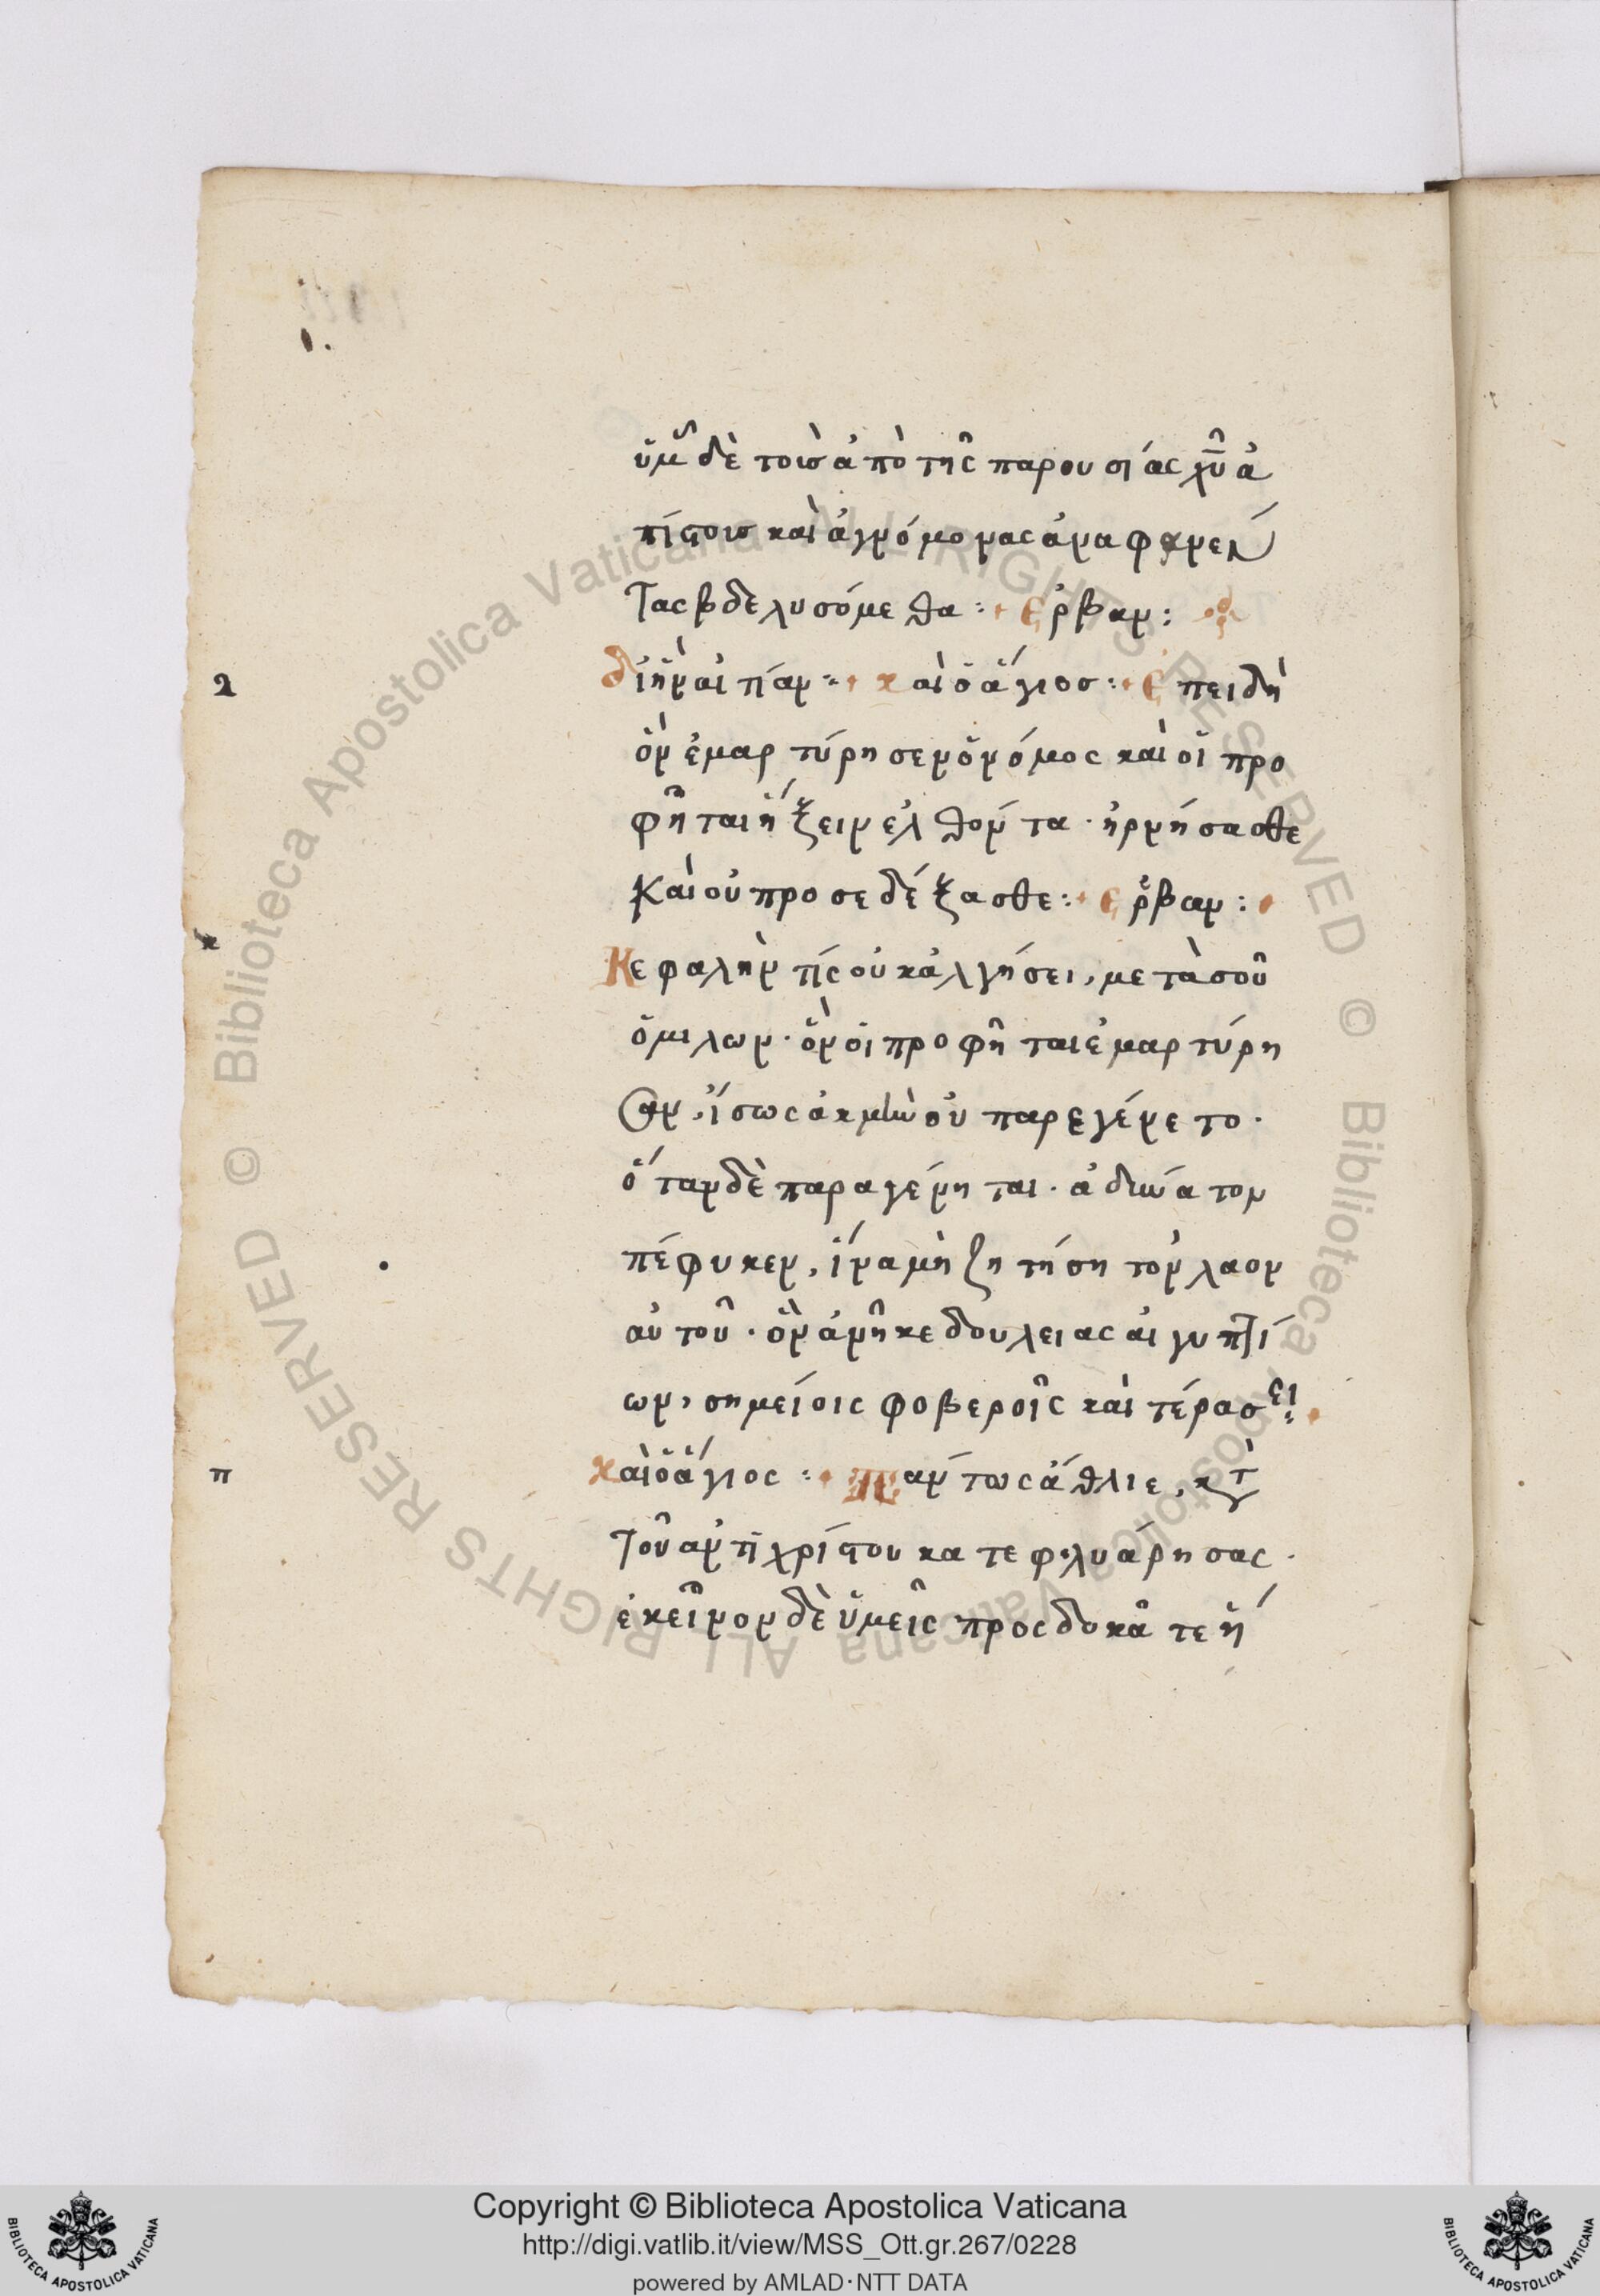 ὑμῖν δὲ τοῖσ ἀπὸ τῆς παρουσίας χῦ ἀ
πίστοισ καὶ ἀγνόμονας ἀναφανέν
τας βδελυσόμεθα: ἑρβαν:
δι ἣν αἰτίαν: καὶ ὁ ἅγιοσ: Ἐπειδὴ
ὃν ἐμαρτύρησεν ὁ νόμος καὶ οἱ προ
φῆται ἥξειν ἐλθόντα· ἠρνήσασθε
Καὶ οὐ προσεδέξασθε: ἑρβαν:
Κεφαλὴν τίς οὐκ ἀλγήσει, μετὰ σοῦ
ὁμιλων· ὃν οἱ προφῆται ἐμαρτύρη
σαν, ἴσως ἀκμὴν οὐ παρεγένετο·
ὅταν δὲ παραγένηται· ἀδύνατον
πέφυκεν, ἵνα μὴ ζητήση τὸν λαον
αὐτοῦ· ὃν ἀνῆκε δουλειας αἰγυπτί
ων, σημείοις φοβεροῖς καὶ τέρασει:
καὶ ὁ ἅγιος: Πάντως ἄθλιε, κατὰ
τοῦ ἀντιχρίστου κατεφλυάρησας·
ἐκεῖνον δὲ ὑμεῖς προσδοκᾶτε ἥ
κ
π
Copyright © Biblioteca Apostolica Vaticana
http://digi.vatlib.it/view/MSS_Ott.gr.267/0228
powered by AMLAD·NTT DATA
BIBLIOTECA APOSTOLICA VATICANA
BIBLIOTECA APOSTOLICA VATICANA
© Biblioteca Apostolica Vaticana ALL RIGHTS RESERVED © Biblioteca Apostolica Vaticana ALL RIGHTS RESERVED